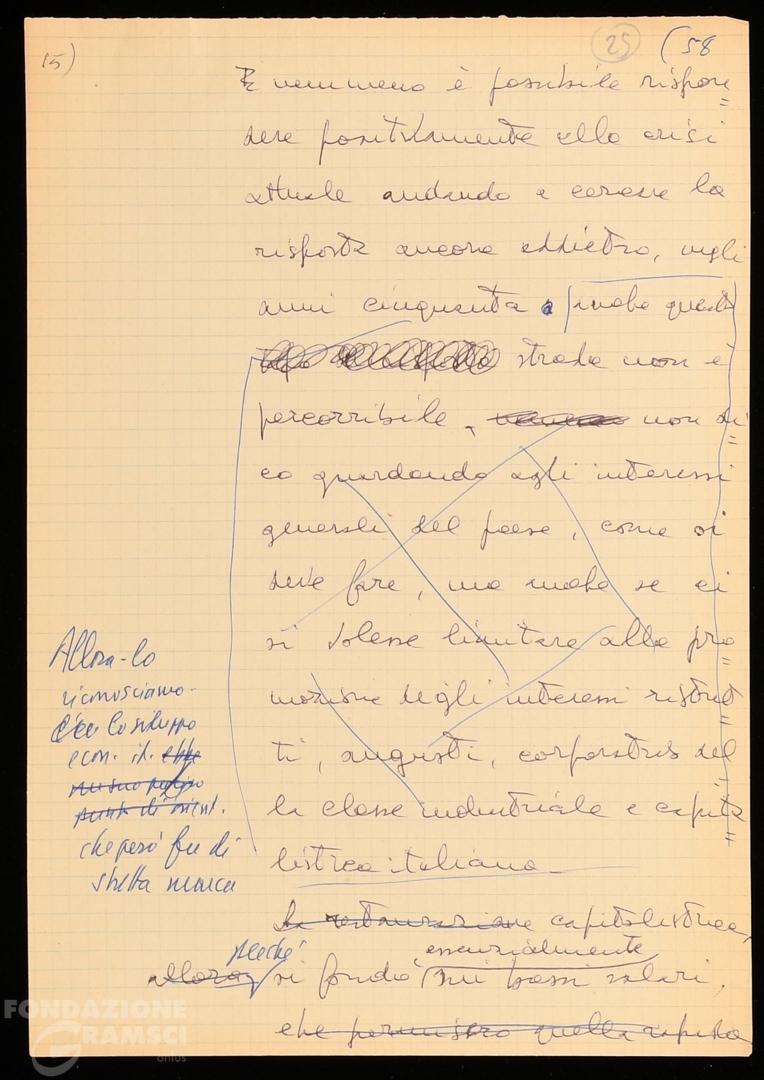 15)
25
(58
E nemmeno è possibile rispon=
dere positivamente alla crisi
attuale andando a cercare la
risposta ancora addietro, negli
anni cinquanta anche questa
strada non è
percorribile, non di=
co guardando agli interessi
generali del paese, come si
deve fare, ma anche se ci
si volesse limitare alla pro=
mozione degli interessi ristret=
ti, angusti, corporativi del=
la classe industriale e capita=
listica italiana.
Allora - lo
riconosciamo -
c'è lo sviluppo
econ. it.
punto di
che però fu di
stretta marca
la restaurazione capitalistica,
perché
essenzialmente
allora si fondò sui bassi salari,
che permisero quella rapida
FONDAZIONE
GRAMSCI
onlus